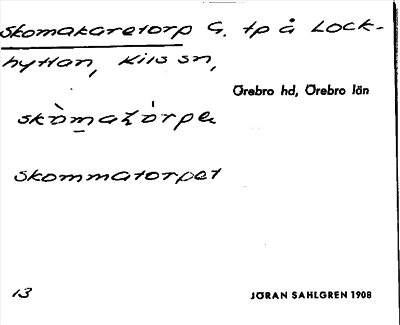 Skomakaretorp G. tp å Lock-
hyttan, Kils sn,
Örebro hd, Örebro län
skommatorpet
13
JÖRAN SAHLGREN 1908